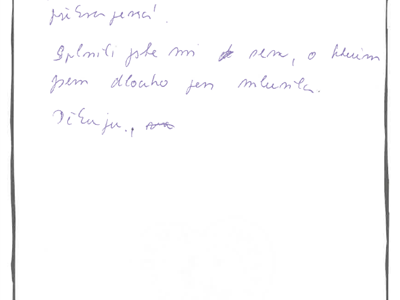 překvapení.
Splnili jste mi sen, o kterém
jsem dlouho jen mluvila.
Děkuju.,